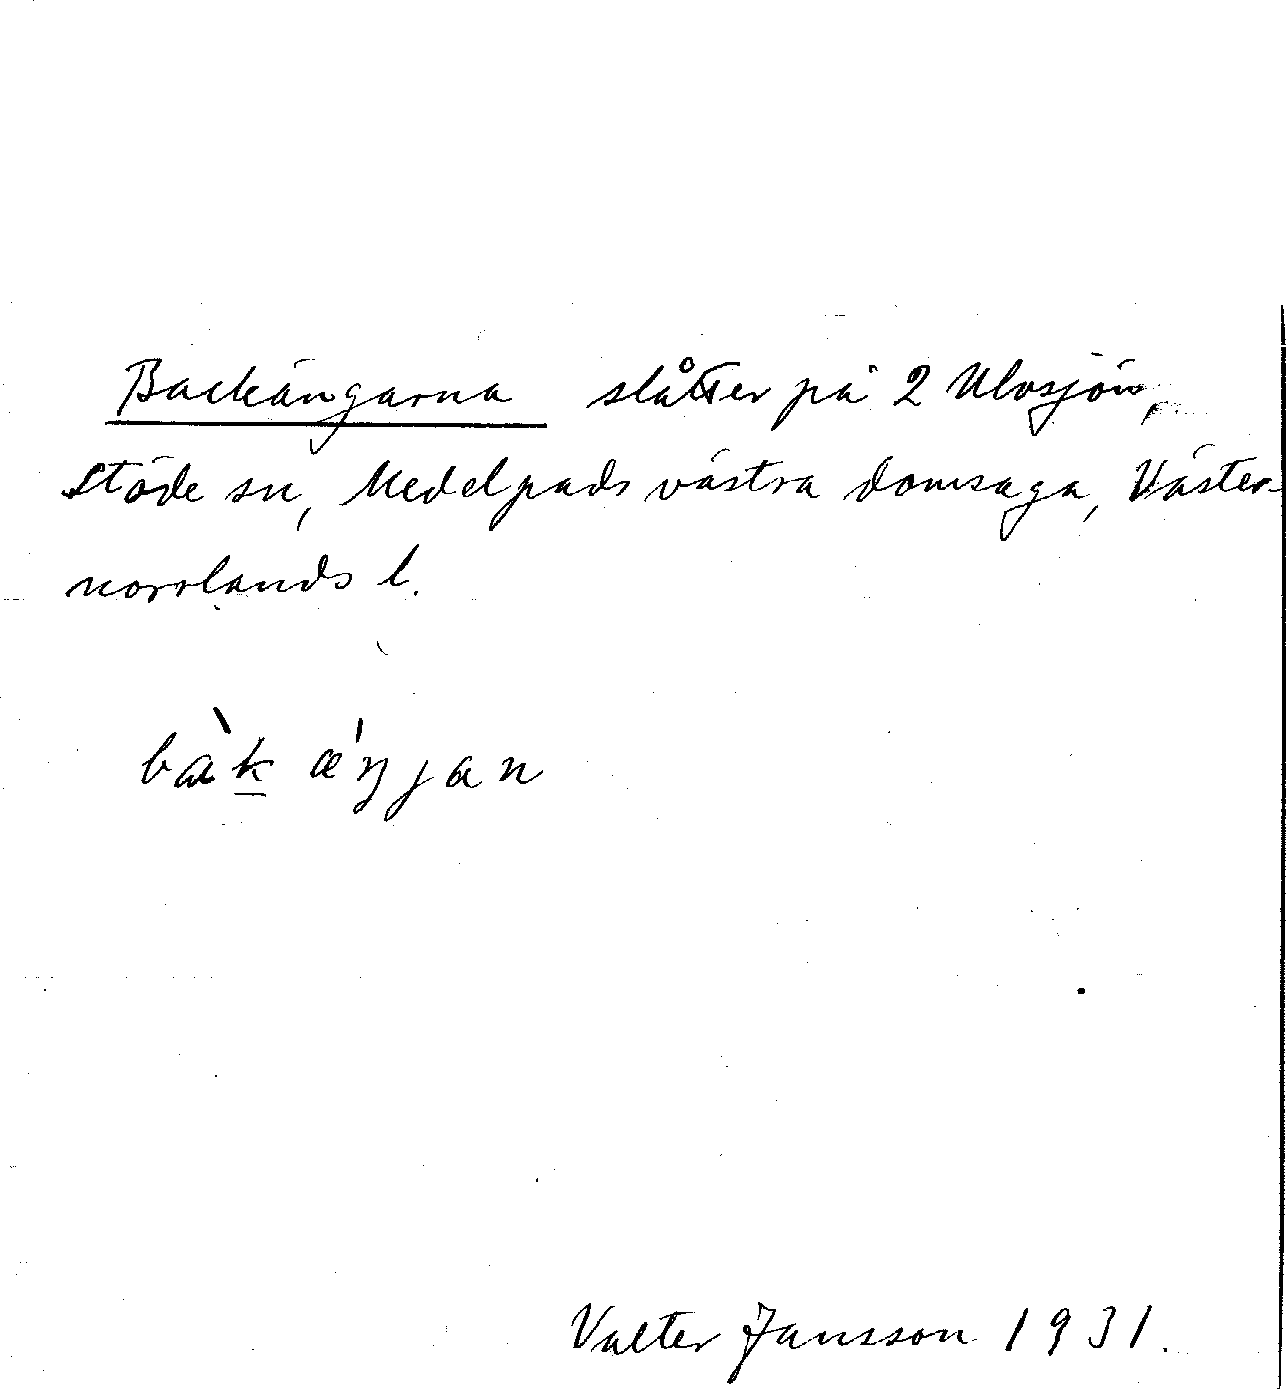 Backängarna slåtter på 2 Ulvsjön,
Stöde sn, Medelpads västra domsaga, Väster-
norrlands l.
bàk æ´ŋjan
Valter Jansson 1931.